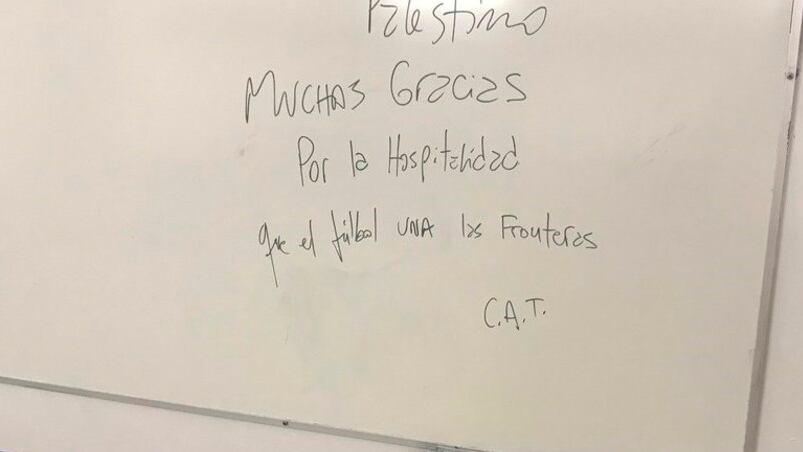 Palestino
MUCHAS Gracias
Por la Hospitalidad
que el fútbol UNA las Fronteras
C.A.T.